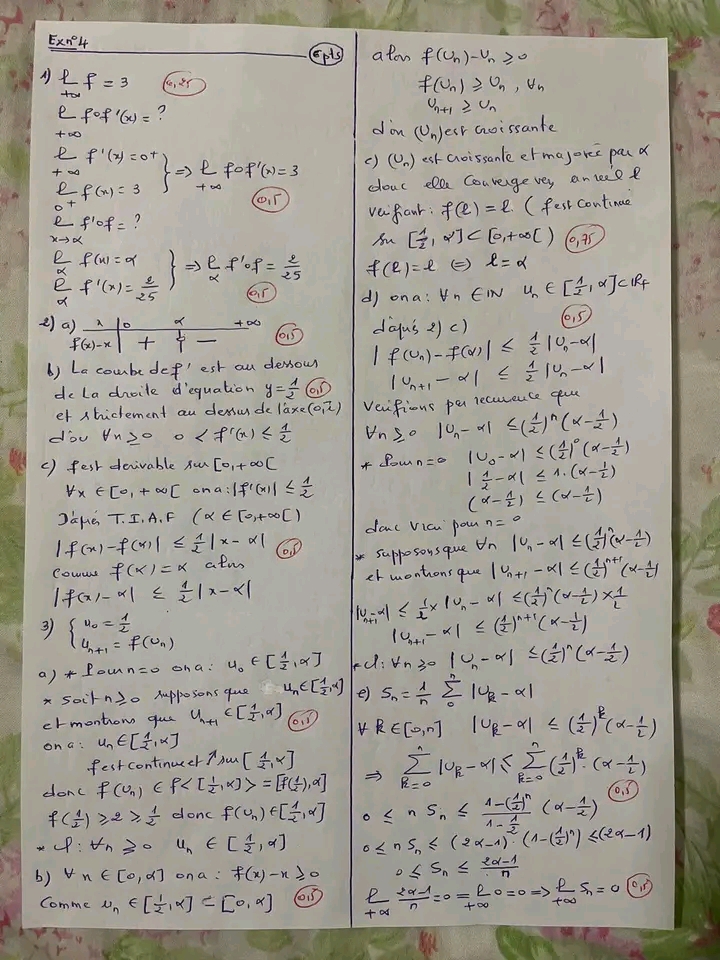 Ex n°4
6pts
1) L f = 3 0,25
+∞
L fof'(x) = ?
+∞
L f'(x) = 0+
+∞
L f(x) = 3
0+
} => L fof'(x) = 3
+∞
0,5
L f'of = ?
x→α
L f(x) = α
α
L f'(x) = 2/25
α
} => L f'of = 2/25
α
0,5
2) a) x | 0 α +∞
f(x)-x | + 0 − 0,5
b) La courbe de f' est au dessous
de la droite d'equation y = 1/2 0,5
et strictement au dessus de l'axe (0,i)
d'où ∀n ≥ 0 0 < f'(x) ≤ 1/2
c) f est derivable sur [0,+∞[
∀x ∈ [0,+∞[ on a: |f'(x)| ≤ 1/2
D'après T.I.A.F (α ∈ [0,+∞[)
|f(x) - f(α)| ≤ 1/2 |x - α| 0,5
Comme f(α) = α alors
|f(x) - α| ≤ 1/2 |x - α|
3) { u0 = 1/2
Un+1 = f(Un)
a) * Pour n=0 on a: u0 ∈ [1/2, α]
* soit n ≥ 0 supposons que un ∈ [1/2, α]
et montrons que Un+1 ∈ [1/2, α] 0,5
on a: un ∈ [1/2, α]
f est continue et ↗ sur [1/2, α]
donc f(Un) ∈ f<[1/2, α]> = [f(1/2), α]
f(1/2) ≥ 2 ≥ 1/2 donc f(Un) ∈ [1/2, α]
* cl: ∀n ≥ 0 un ∈ [1/2, α]
b) ∀x ∈ [0, α] on a: f(x) - x ≥ 0
Comme un ∈ [1/2, α] ⊂ [0, α] 0,5
alors f(Un) - Un ≥ 0
f(Un) ≥ Un, ∀n
Un+1 ≥ Un
d'où (Un) est croissante
c) (Un) est croissante et majorée par α
donc elle converge vers un réel l
verifiant: f(l) = l. (f est continue
sur [1/2, α] ⊂ [0, +∞[) 0,75
f(l) = l <=> l = α
d) on a: ∀n ∈ IN un ∈ [1/2, α] ⊂ IR+
d'après 2) c) 0,5
|f(Un) - f(α)| ≤ 1/2 |Un - α|
|Un+1 - α| ≤ 1/2 |Un - α|
Verifions par recurence que
∀n ≥ 0 |Un - α| ≤ (1/2)^n (α - 1/2)
* Pour n=0 |U0 - α| ≤ (1/2)^0 (α - 1/2)
|1/2 - α| ≤ 1.(α - 1/2)
(α - 1/2) ≤ (α - 1/2)
donc vrai pour n = 0
* supposons que ∀n |Un - α| ≤ (1/2)^n (α - 1/2)
et montrons que |Un+1 - α| ≤ (1/2)^n+1 (α - 1/2)
|Un+1 - α| ≤ 1/2 × |Un - α| ≤ (1/2)^n (α - 1/2) × 1/2
|Un+1 - α| ≤ (1/2)^n+1 (α - 1/2)
* cl: ∀n ≥ 0 |Un - α| ≤ (1/2)^n (α - 1/2)
e) Sn = 1/n Σ |Uk - α|
∀k ∈ [0,n] |Uk - α| ≤ (1/2)^k (α - 1/2)
=> Σ |Uk - α| ≤ Σ (1/2)^k . (α - 1/2)
0 ≤ n Sn ≤ (1-(1/2)^n)/(1-1/2) (α - 1/2) 0,5
0 ≤ n Sn ≤ (2α-1).(1-(1/2)^n) ≤ (2α-1)
0 ≤ Sn ≤ (2α-1)/n
L (2α-1)/n = 0 = L 0 = 0 => L Sn = 0 0,5
+∞ +∞ +∞